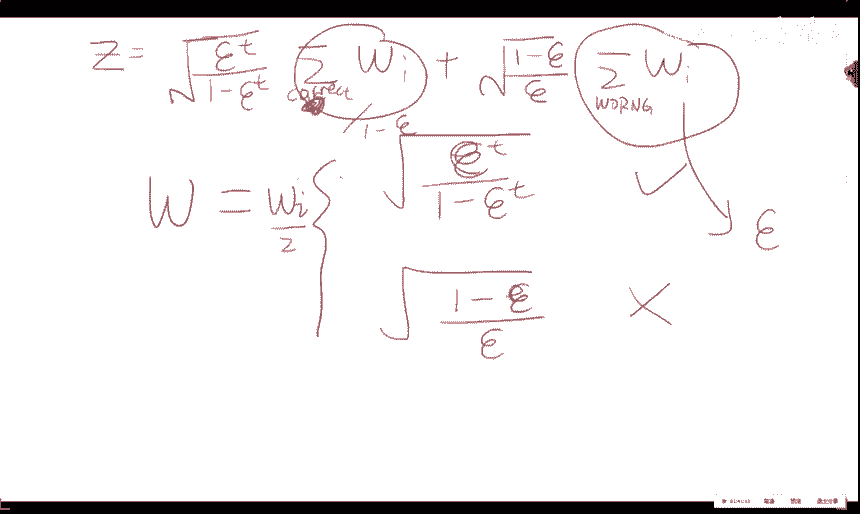 Z = √(ε^t / 1-ε^t) Σ correct W i + √(1-ε / ε) Σ WORNG W i
1-ε
W = Wi / Z { √(ε^t / 1-ε^t) ✓ ε
√(1-ε / ε) ×